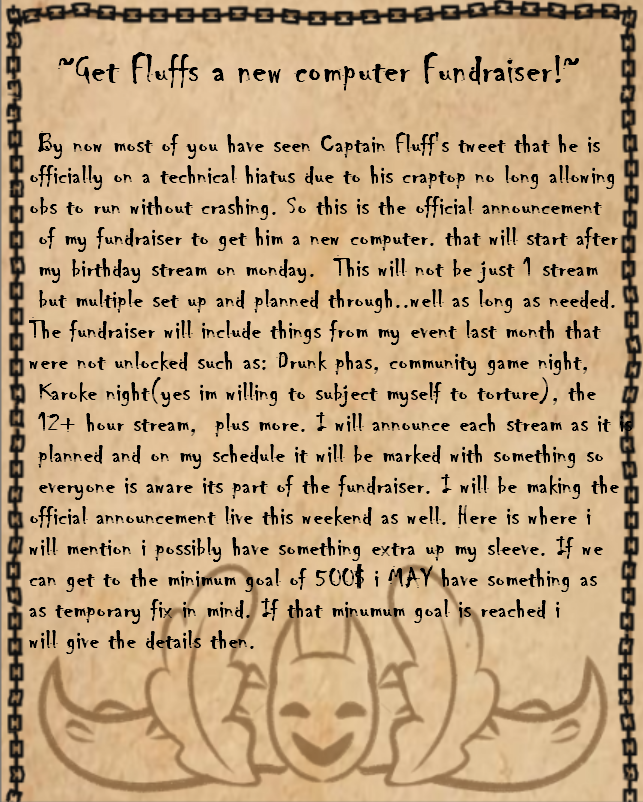 ~Get Fluffs a new computer Fundraiser!~
By now most of you have seen Captain Fluff's tweet that he is
officially on a technical hiatus due to his craptop no long allowing
obs to run without crashing. So this is the official announcement
of my fundraiser to get him a new computer. that will start after
my birthday stream on monday. This will not be just 1 stream
but multiple set up and planned through..well as long as needed.
The fundraiser will include things from my event last month that
were not unlocked such as: Drunk phas, community game night,
Karoke night(yes im willing to subject myself to torture), the
12+ hour stream, plus more. I will announce each stream as it is
planned and on my schedule it will be marked with something so
everyone is aware its part of the fundraiser. I will be making the
official announcement live this weekend as well. Here is where i
will mention i possibly have something extra up my sleeve. If we
can get to the minimum goal of 500$ i MAY have something as
as temporary fix in mind. If that minumum goal is reached i
will give the details then.